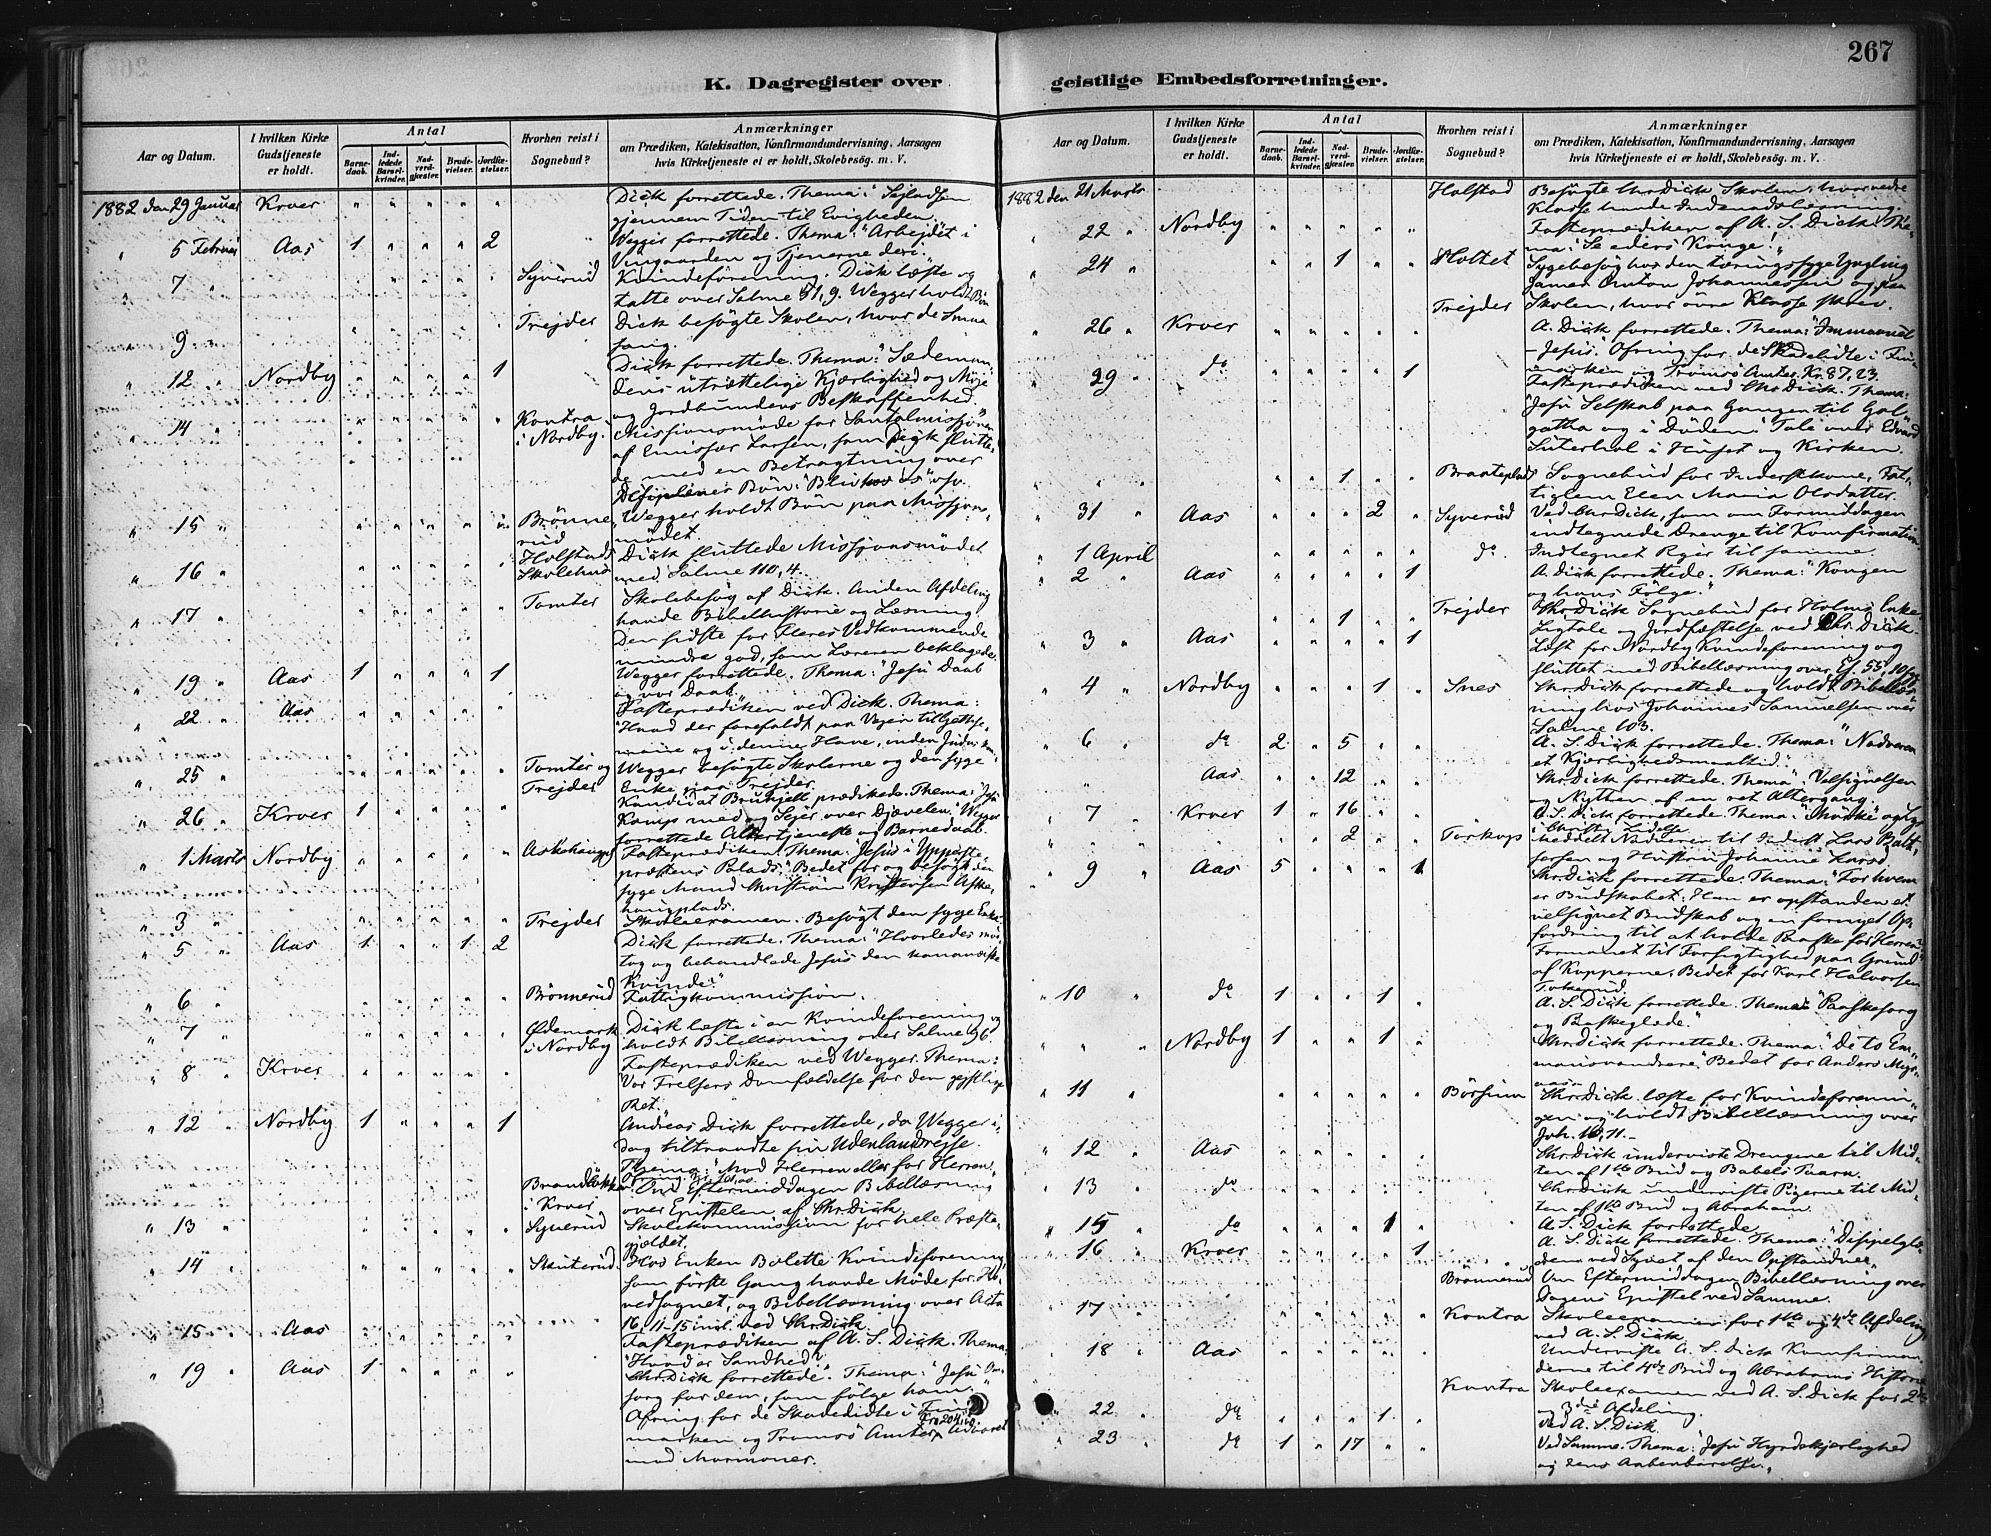 267
K. Dagregister over geistlige Embedsforretninger.
Aar og Datum.
I hvilken Kirke Gudstjeneste er holdt.
Antal
Barnedaab.
Indledede Barselkvinder.
Nadverdgjæster.
Brudevielser.
Jordfæstelser.
Hvorhen reist i Sognebud?
Anmærkninger
om Prædiken, Katekisation, Konfirmandundervisning, Aarsagen
hvis Kirketjeneste ei er holdt, Skolebesög. m. V.
1882 den 29 Januar Kroer " " " " " Dick forrettede. Thema: "Sejladsen
gjennem Tiden til Evigheden."
" 5 Februar Aas 1 " " " 2 Wegger forrettede. Thema: "Arbejdet i
Vingaarden og Tjenerne deri."
" 7 " Syverud Kvindeforening. Dick læste og
talte over Salme 51, 9. Wegger holdt Bön
" 9 Trejder Dick besögte Skolen, hvor de Smaa
sang.
" 12 " Nordby " " " " 1 Dick forrettede. Thema: "Sædeman-
dens utrættelige Kjærlighed og Möje
og Jordbundens Beskaffenhed.
" 14 " Kontra i Nordby. Missionsmöde for Santalmissionen
af Emissær Larsen, som Dick slutte-
de med en Betragtning over
Disiplenes Bön: "Bliv hos os" osv.
" 15 " Brönnerud Wegger holdt Bön paa Missions-
mödet.
" 16 " Holstads Skolehus Dick sluttede Missionsmödet
med Salme 110, 4.
" 17 " Tomter Skolebesög af Dick. Anden Afdeling
havde Bibelhistorie og Læsning
Den sidste for Fleres Vedkommende
mindre god, som Læreren beklagede.
" 19 " Aas 1 " " " 1 Wegger forrettede. Thema: "Jesu Daab
og vor Daab."
" 22 " Aas Fasteprædiken ved Dick. Thema:
"Hvad der forefaldt paa Vejen til Gethse-
mane og i denne Have, inden Judas kom."
" 25 " Tomter og Trejder Wegger besögte Skolerne og den syge
Enke paa Trejder.
" 26 " Kroer 1 " " " " Kandidat Bruhjell prædikede. Thema: "Jesu
Kamp med og Sejer over Djævelen." Wegger
forrettede Altertjeneste og Barnedaab.
" 1 Marts Nordby Askehaug Fasteprædiken. Thema: Jesus i Yppeste-
præstens Palads." Bedet for og besögt den
syge Mand Christian Kristersen Aske-
haugplads.
" 3 " Trejder Skoleexamen. Besögt den syge Enke.
" 5 " Aas 1 " " 1 2 Dick forrettede. Thema: "Hvorledes mod-
tog og behandlede Jesus den kananæiske
Kvinde?"
" 6 " Brönnerud Fattigkommission.
" 7 " Ødemark i Nordby Dick læste i en Kvindeforening og
holdt Bibellæsning over Salme 96.
" 8 " Kroer Fasteprædiken ved Wegger. Thema:
"Vor Frelsers Domfældelse for den gejstlige
Ret."
" 12 " Nordby 1 " " " 1 Andreas Dick forrettede, da Wegger i-
dag tiltraadte sin Udenlandsrejse.
Thema: "Mod Herren eller for Herren."
Brandlökken i Kroer Om Eftermiddagen Bibellæsning
over Epistelen af Chr. Dick.
" 13 " Syverud Skolekommission for hele Præste-
gjældet.
" 14 " Skuterud Hos Enken Bolette Kvindeforening
som förste Gang havde Möde for Ho-
vedsognet, og Bibellæsning over Acta
16, 11-15 incl. ved Chr. Dick.
" 15 " Aas Fasteprædiken af A. S. Dick. Thema:
"Hvad er Sandhed?"
" 19 " Aas 1 " " " " Chr. Dick forrettede. Thema: "Jesu Om-
sorg for dem, som fölge ham."
Ofring for de Skadelidte i Fin-
marken og Tromsö Amter. Advaret
mod Mormoner.
Aar og Datum.
I hvilken Kirke Gudstjeneste er holdt.
Antal
Barnedaab.
Indledede Barselkvinder.
Nadverdgjæster.
Brudevielser.
Jordfæstelser.
Hvorhen reist i Sognebud?
Anmærkninger
om Prædiken, Katekisation, Konfirmandundervisning, Aarsagen
hvis Kirketjeneste ei er holdt, Skolebesög. m. V.
1882 den 21 Marts Holstad Besögte Chr. Dick Skolen, hvor nedre
Klasse havde Indenadslæsning.
" 22 " Nordby " " " " " Fasteprædiken af A. S. Dick. The-
ma: "Se eders Konge!"
" 24 " " " 1 " " Holtet Sygebesög hos den tæringssyge Yngling
James Anton Johannessen og paa
Trejder Skolen, hvor övre Klasse skrev.
" 26 " Kroer " " " " " A. Dick forrettede. Thema: "Immanuel
- Jesus." Ofring for de Skadelidte i Fin-
marken og Tromsö Amter. Kr. 87, 23.
" 29 " do " " " " 1 Fasteprædiken ved Chr. Dick. Thema:
"Jesu Selskab paa Gangen til Gol-
gatha og i Döden." Tale over Edvard
Süterhol i Huset og Kirken.
" " " " 1 " " Braateplads Sognebud for Inderstkone, Fat-
tiglem Elen Maria Olsdatter.
" 31 " Aas " " " 2 " Syverud Ved Chr. Dick, som om Formiddagen
indtegnede Drenge til Konfirmation.
" 1 April do Indtegnet Piger til samme.
" 2 " Aas " " " " 1 A. Dick forrettede. Thema: "Kongen
og hans Fölge."
" " 1 " " Trejder Chr. Dick Sognebud for Holms Enke.
" 3 " Aas " " " " 1 Ligtale og Jordfæstelse ved Chr. Dick.
Læst for Nordby Kvindeforening og
sluttet med Bibellæsning over Es. 55, 10 fg.
" 4 " Nordby " " " 1 " Snes Chr. Dick forrettede og holdt Bibellæs-
ning hos Johannes Samuelsen over
Salme 103.
" 6 " do 2 " 5 " " A. S. Dick forrettede. Thema: "Nadveren
et Kjærlighedsmaaltid."
" " Aas " " 12 " " Chr. Dick forrettede. Thema: "Velsignelsen
og Nytten af en ret Altergang.
" 7 " Kroer 1 " 16 " " A. S. Dick forrettede. Thema: "Mörke og Lys
i Christi Lidelse."
" " " " 2 " " Torkop Meddelt Nadveren til Inderst Lars Balt-
sersen og Hustru Johanne Larsd.
" 9 " Aas 5 " " " 1 Chr. Dick forrettede. Thema: "For hvem
er Budskabet: Han er opstanden et
velsignet Budskab og en fornyet Op-
fordring til at holde Paaske for Herren?"
Formanet til Forsigtighed paa Grund
af Kopperne. Bedet for Karl Halvorsen
" 10 " do 1 " " 1 " A. S. Dick forrettede. Thema: "Paaskesorg
og Paaskeglæde."
" " Nordby 1 " " 1 " Chr. Dick forrettede. Thema: "De to Em-
mausvandrere." Bedet for Anders Myr-
aasen
" 11 " Börsum Chr. Dick læste for Kvindeforenin-
gen og holdt Bibellæsning over
Joh. 10, 11.
" 12 " Aas Chr. Dick underviste Drengene til Mid-
ten af 1ste Bud og Babels Taarn.
" 13 " do Chr. Dick underviste Pigerne til Mid-
ten af 1ste Bud og Abraham.
" 15 " do " " " 1 " A. S. Dick forrettede.
" 16 " Kroer " " " " 1 A. S. Dick forrettede. Thema: "Disipelglæ-
den ved Synet af den Opstandne."
Brönnerud Om Eftermiddagen Bibellæsning over
Dagens Epistel ved Samme.
" 17 " Kontra Skoleexamen for 1ste og 4de Afdeling
ved A. S. Dick.
" 18 " Aas Underviste A. S. Dick Konfirman-
derne til 4de Bud og Abrahams Historie
Kontra Skoleexamen ved A. S. Dick for 2den
og 3die Afdeling.
" 22 " do " " " 1 " Ved A. S. Dick.
" 23 " do 1 " 17 " " Ved Samme. Thema: "Jesu Hyrdekjærlighed
og dens Aabenbarelse."